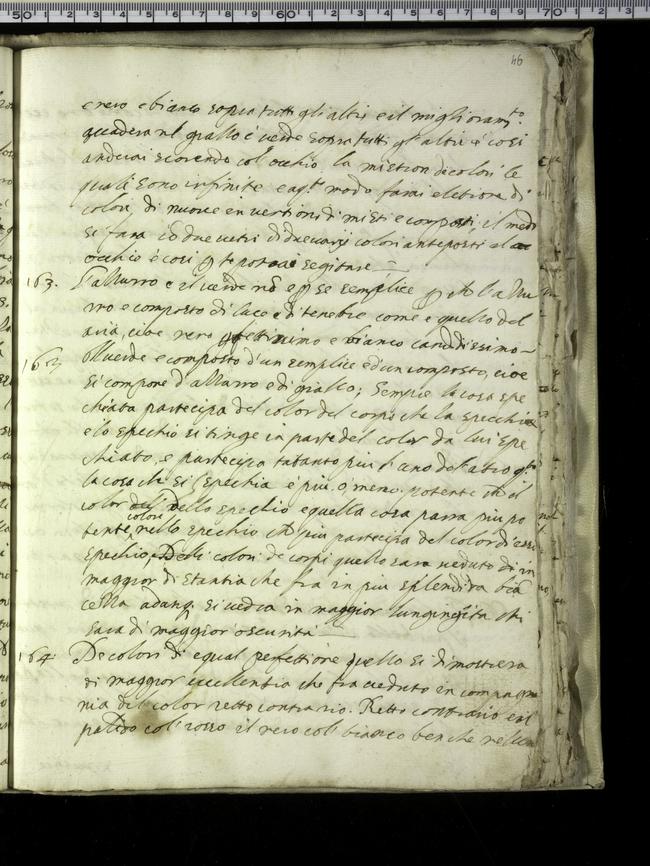 46
e nero e bianco sopra tutti gli altri e il miglioram.to
accadera nel giallo e verde sopra tutti gl'altri e cosi
anderai scorendo col'occhio la mistion de colori le
quali sono infinite e a q.to modo farai eletione di
colori, di nuove inventioni di misti e composti, il med.o
si fara cō due vetri di due varij colori anteposti al
occhio e cosi p te potrai segitare
163. l'azzurro e il verde nō e p se semplice l'azzu
rro e composto di luce e di tenebre come e quello del
aria, cioe nero pfettissimo e bianco candidissimo
163 Il verde e composto d'un semplice e d'un composto, cioe
si compone d'azzurro e di giallo; Sempre la cosa spe
chiata partecipa del color del corpo che la spechia
e lo spechio si tinge in parte del color da lui spe
chiato, e partecipa tātanto piu l'uno del'altro
la cosa che si spechia e piu o meno potente che il
color dello spechio e quella cosa parra piu po
tente colore nello spechio che piu partecipa del color d'esso
spechio, Delli colori di corpi quello sara veduto di in
maggior distantia che fia in piu splendida biā
cezza adunq. si vedra in maggior lunginqita che
sara di maggior oscurita
164. De colori di equal perfettione quello si dimostrera
di maggior excellentia che fia veduto in compag
nia del color retto contrario. Retto contrario e il
palido col rosso il nero col bianco benche